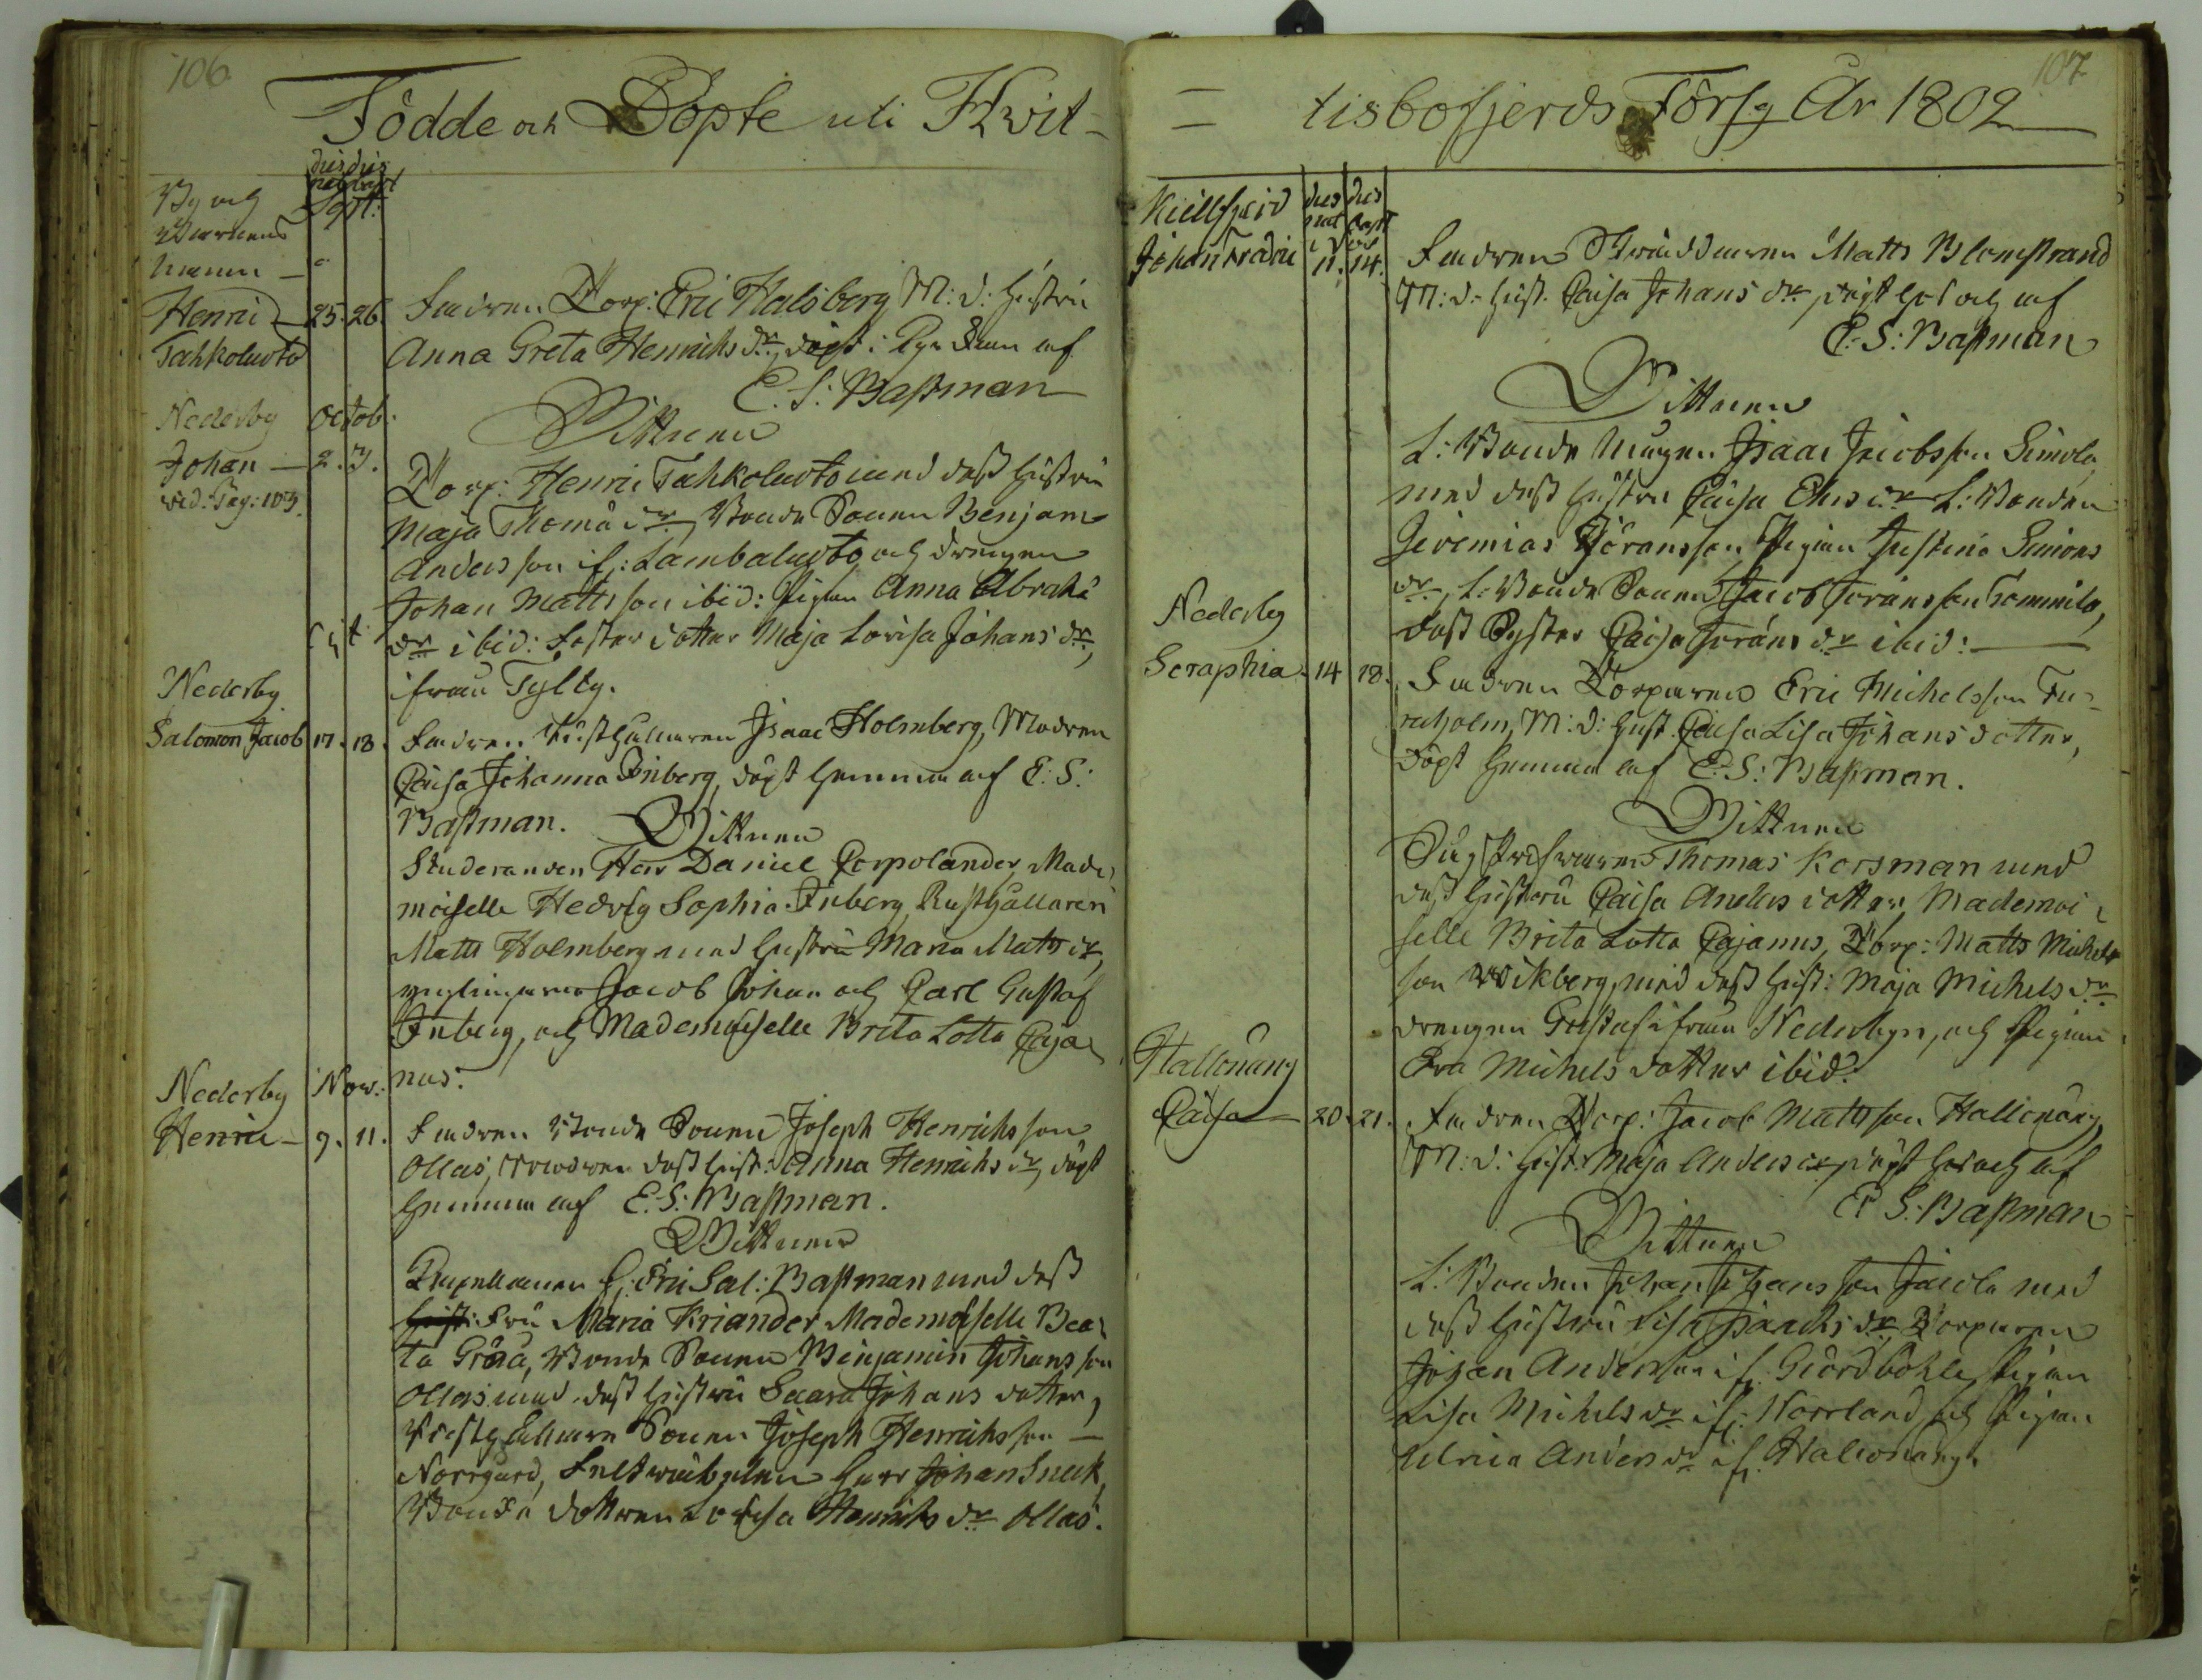 106
Födde och Döpte uti Hvit-
dies dies
nat bapt
By och Sept:
Barnens
namn —
Henric — 25. 26. Fadren Torp: Eric Halsberg M: d: Hustru
Tahkoluoto Anna Greta Henrichs dr, döpt i Kyrckan af
E. S: Bastman
Nederby Octob.
Wittnen
Johan — 2. 3.
vid. Pag: 103.
Torp: Henric Tahkoluoto med dess hustru
Maja Thoma dr, Bonde Sonen Benjam
Anders son if: Lambaluoto, och drengen
Johan Matts son ibid: Pigan Anna Abrahä
dr ibid: Foster dotter Maja Lovisa Johans dr,
ifrån Tylly.
Nederby
Salomon Jacob 17. 18. Fadren Rusthållaren Isaac Holmberg, Modren
Caisa Johanna Inberg, döpt hemma af E: S:
Bastman. Wittnen
Studeranden Herr Daniel Corpolander, Made-
moiselle Hedvig Sophia Inberg, Rusthållaren
Matts Holmberg med hustru Maria Matts dr,
ynglingarne Jacob Johan och Carl Gustaf
Inberg, och Mademoiselle Brita Lotta Caja-
nus.
Nederby Nov:
Henric — 9. 11. Fadren Bonde Sonen Joseph Henrichs son
Ollas, Modren dess hust: Anna Henrichs dr, döpt
hemma af E. S: Bastman.
Wittnen
Capellanen H: Eric Sal: Bastman med dess
hust: Fru Maria Kriander, Mademoiselle Bea-
ta Gråå, Bonde Sonen Benjamin Johans son
Ollas med dess hustru Saara Johans dotter,
Rusthållare Sonen Joseph Henrichs son —
Norrgård, Herr Johan Sneck,
Bonde dottren Lovisa Henrichs dr Ollas.
107
= tisbofjerds Förs:g År 1802
Kiellfjerd dies dies
nat bapt
Johan Fredric 11. 14. Fadren Matts Blomstrand
M: d: hust. Caisa Johans dr döpt hos och af
E: S: Bastman
Wittnen
L: Bonde mågen Isaac Jacobsson Simola,
med dess hustru Caisa Ehrs dr L: Bonden
Jeremias Göransson, Pigan Justina Simons
dr, L: Bonde Sonen Jacob Göransson Tommila,
dess Syster Caisa Göräns dr ibid: —
Nederby
Seraphia. 14 18. Fadren Torparen Eric Michelsson Fu-
ruholm, M: d: hust. Caisa Lisa Johans dotter,
döpt hemma af E: S: Bastman.
Wittnen
Thomas Korsman med
dess hustru Caisa Anders dotter Mademoi-
selle Brita Lotta Cajanus, Torp: Matts Michels
son Wikberg, med dess hust: Maja Michels dr
drengen Gustaf ifrån Nederbyn, och Pigan
Eva Michels dotter ibid:
Hallonäng
Caisa — 20. 21. Fadren Torp: Jacob Matts son Hallonäng,
M: d: hust: Maja Anders dr, döpt hos och af
E S: Bastman
Wittnen
L: Bonden Johan Johans son Jacola med
dess hustru Lisa Isaachs dr Torparen
Johan Andersson if: Giördböhle, Pigan
Lisa Michels dr if: Norrland, och Pigan
Ulrica Anders dr if Hallonäng.